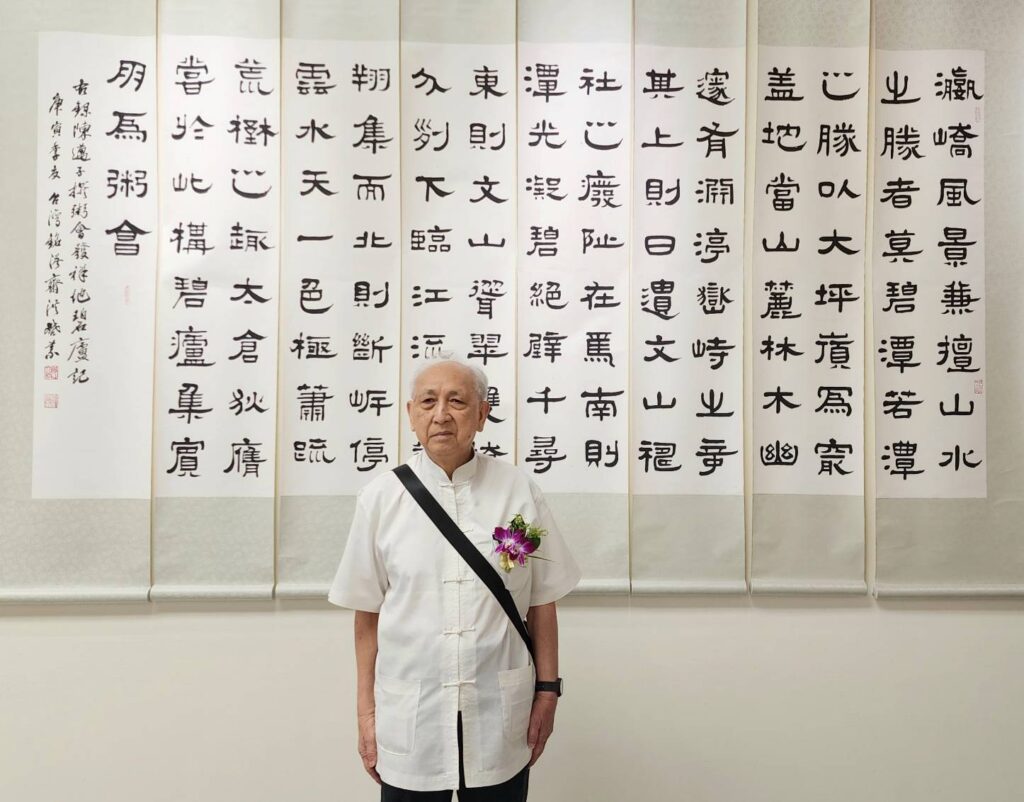 瀛嶠風景兼擅山水
之勝者莫碧潭若潭
之勝以大坪嶺為最
盖地當山麓林木幽
邃有渊渟嶽峙之
其上則日遺文山神
社之廢阯在焉南則
潭光凝碧絕壁千尋
東則文山聳翠雙
分列下臨江流
翔集而北則斷岸停
雲水天一色極蕭疏
荒之趣太倉狄膺
嘗於此構碧廬集賓
朋為粥會
古錄陳邁子撰粥會發祥地碧廬記
庚寅季夏台灣銘澤齋洪